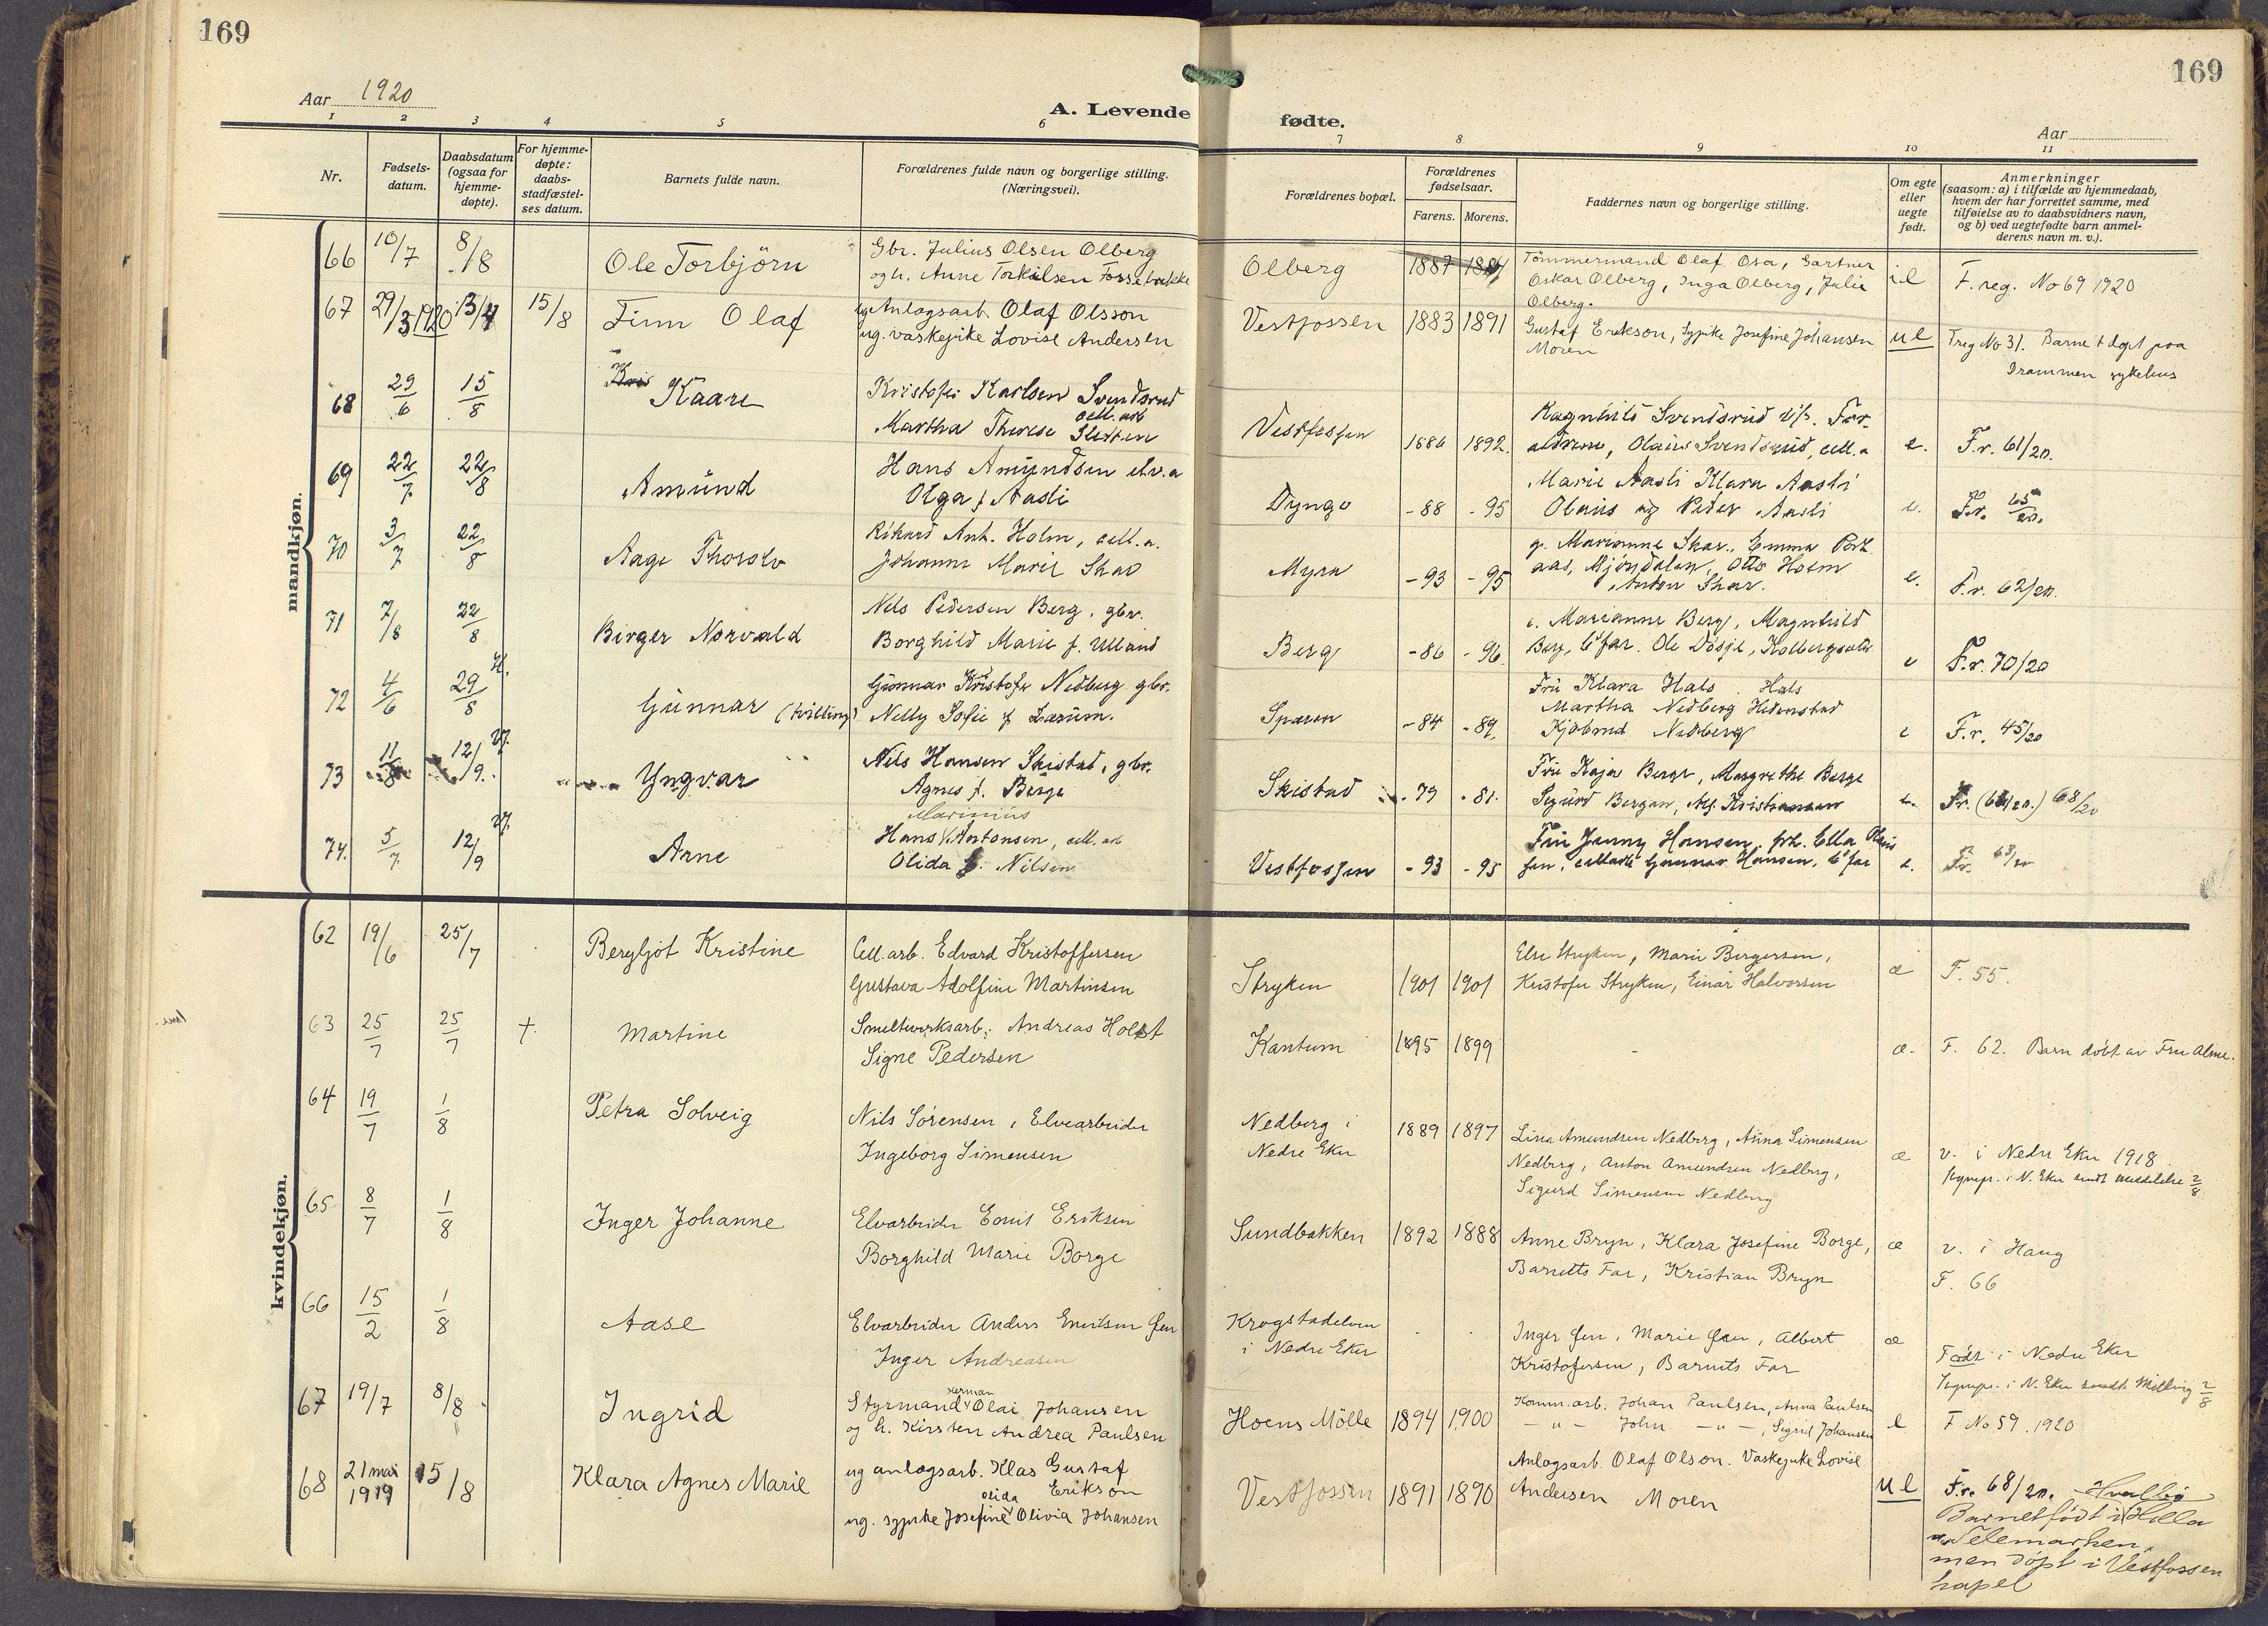 169
169
Aar 1920
A. Levende
fødte.
Aar
1 2 3 4 5 6
7 8 9 10 11
Nr.
Fødsels-
datum.
Daabsdatum
(ogsaa for
hjemme-
døpte).
For hjemme-
døpte:
daabs-
stadfæstel-
ses datum.
Barnets fulde navn.
Forældrenes fulde navn og borgerlige stilling.
(Næringsvei).
Forældrenes bopæl.
Forældrenes
fødselsaar.
Farens. Morens.
Faddernes navn og borgerlige stilling.
Om egte
eller
uegte
født.
Anmerkninger
(saasom: a) i tilfælde av hjemmedaab,
hvem der har forrettet samme, med
tilføielse av to daabsvidners navn,
og b) ved uegtefødte barn anmel-
derens navn m. v.).
mandkjøn.
66 10/7 8/8 Ole Torbjörn
Gbr. Julius Olsen Olberg
og h. Anne Torkilsen
Olberg 1887
Tömmermand Olaf Osa, Gartner
Oskar Olberg, Inga Olberg, Julie
Olberg.
F. reg. No 69 1920
67 29/3 1920 13/4 15/8 Finn Olaf
ug Anlagsarb. Olaf Olsson
ug. vaskepike Lovise Andersen
Vestfossen 1883 1891
Gustaf Erikson, Sypike Josefine Johansen
Moren
u e
F reg No 31. Barnet døpt paa
Drammen sykehus
68 29/6 15/8 Kaare
Kristofer Karlsen Svendsrud
cell. arb
Martha Therese
Vestfossen 1886 1892.
Ragnhild Svendsrud, For-
ældrene, Olaus Svendsrud, cell. a
e. F.r. 61/20.
69 22/7 22/8 Amund
Hans Amundsen elv. a
Olga f. Aasli
Dynge -88 -95
Marie Aasli Klara Aasli
Olaus og Peder Aasli
e. F.r. 65/20.
70 3/7 22/8 Aage Thorolv
Rikard Ant. Holm, cell. a.
Johanne Marie Skar
Myra -93 -95
g. Marianne Skar, Emma
aas, Mjøndalen, Otto Holm
Anton Skar.
e. F.r. 62/20.
71 7/8 22/8 Birger Norvald
Nels Pedersen Berg, gbr.
Borghild Marie f. Ulland
Berg -86 -96
Marianne Berg, Magnhild
Berg, b's far. Ole Døsje,
e F.r. 70/20
72 4/6 29/8 Gunnar (tvilling)
Gunnar Kristofer Nedberg gbr.
Nelly Sofie f Larum.
Sparen -84 -89
Fru Klara Hals. Hals
Martha Nedberg Hedenstad
Nedberg
e F.r. 45/20
73 11/8 12/9. Yngvar
Nils Hansen Skistad, gbr.
Agnes f. Berge
Skistad -79 -81.
Fru Kaja Berge, Margrethe Berge
Sigurd Bergan, Alf. Kristiansen
e. F.r. 68/20
74. 5/7 12/9 Arne
Marinius
Hans Antonsen, cell. arb
Olida f. Nilsen
Vestfossen -93 -95
Fru Jenny Hansen, frk. Ella Olaus
sen, cellarb Gunnar Hansen, b's far
e. F.r. 63/20
kvindekjøn.
62 19/6 25/7 Bergljot Kristine
Cell. arb. Edvard Kristoffersen
Gustava Adolfine Martinsen
Stryken 1901 1901
Else Stryken, Marie Bergersen,
Kristofer Stryken, Einar Halvorsen
æ F. 55.
63 25/7 25/7 † Martine
Smelteverksarb. Andreas Holst
Signe Pedersen
Kantum 1895 1899
æ. F. 62. Barn döbt av Fru Alme.
64 19/7 1/8 Petra Solveig
Nils Sörensen, Elvearbeider
Ingeborg Simensen
Nedberg i
Nedre Eker
1889 1897
Lina Amundsen Nedberg, Anna Simensen
Nedberg, Anton Amundsen Nedberg,
Sigurd Simensen Nedberg
æ v. i Nedre Eker 1918
Sognepr. i N. Eker sendt meddelelse 2/8
65 8/7 1/8 Inger Johanne
Elvarbeider Emil Eriksen
Borghild Marie Borge
Sundbakken 1892 1888
Anne Bryn, Klara Josefine Borge,
Barnets Far, Kristian Bryn
æ v. i Haug
F. 66
66 15/2 1/8 Aase
Elvarbeider Anders Eneritsen
Inger Andreasen
Krogstadelven
i Nedre Eker
Inger, Marie, Albert
Kristofersen, Barnets Far
æ Født i Nedre Eker
Sognepr. i N. Eker sendt Melding 2/8
67 19/7 8/8 Ingrid
Herman
Styrmand Olai Johansen
og h. Kirsten Andrea Paulsen
Hoens Mölle 1894 1900
Komm. arb. Johan Paulsen, Anna Paulsen
- " - John - " -, Sigrid Johansen
e F No 59. 1920
68 21 mai 1919 15/8 Klara Agnes Marie
ug anlagsarb. Klas Gustaf
Erikson
olida
ug. sypike Josefine Olivia Johansen
Vestfossen 1891 1890
Anlagsarb. Olaf Olson. Vaskepike Lovise
Andersen Moren
u e
F.r. 68/20.
Barnet født i Holla
Telemarken,
men døpt i Vestfossen
kapel